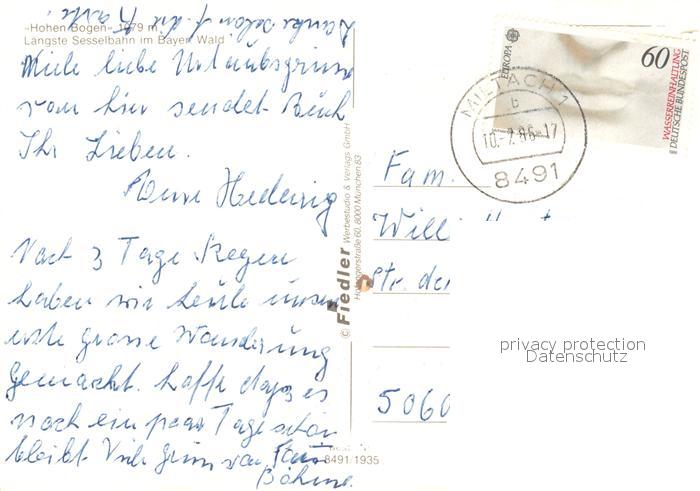 Danke schön f. die Karte!
"Hohen Bogen" 1079 m
Längste Sesselbahn im Bayer. Wald
Viele liebe Urlaubsgrüsse
von hier sendet Euch
Ihr Lieben.
Eure Hedwig
Nach 3 Tage Regen
haben wir heute unsere
erste grosse Wanderung
gemacht. hoffe dass es
noch ein paar Tage schön
bleibt. Viele grüsse von
Böhme.
© Fiedler Werbestudio & Verlags GmbH
8000 München 83
8491/1935
EUROPA
60
WASSERREINHALTUNG
DEUTSCHE BUNDESPOST
MILTACH 1
b
10.-7.86-17
8491
Fam.
Willi
Str. der
5060
privacy protection
Datenschutz